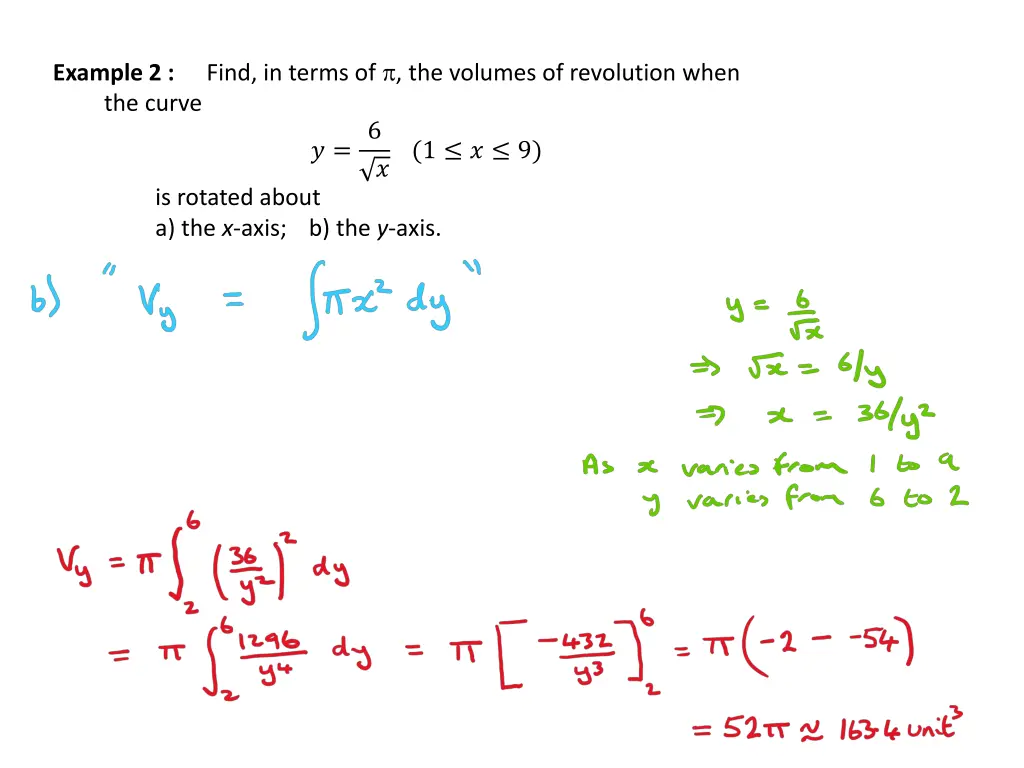 Example 2 : Find, in terms of π, the volumes of revolution when
the curve
y = 6/√x (1 ≤ x ≤ 9)
is rotated about
a) the x-axis; b) the y-axis.
b) " V_y = ∫πx² dy "
y = 6/√x
⇒ √x = 6/y
⇒ x = 36/y²
As x varies from 1 to 9
y varies from 6 to 2
V_y = π ∫₂⁶ (36/y²)² dy
= π ∫₂⁶ 1296/y⁴ dy = π [-432/y³]₂⁶ = π(-2 - -54)
= 52π ≈ 163.4 unit³